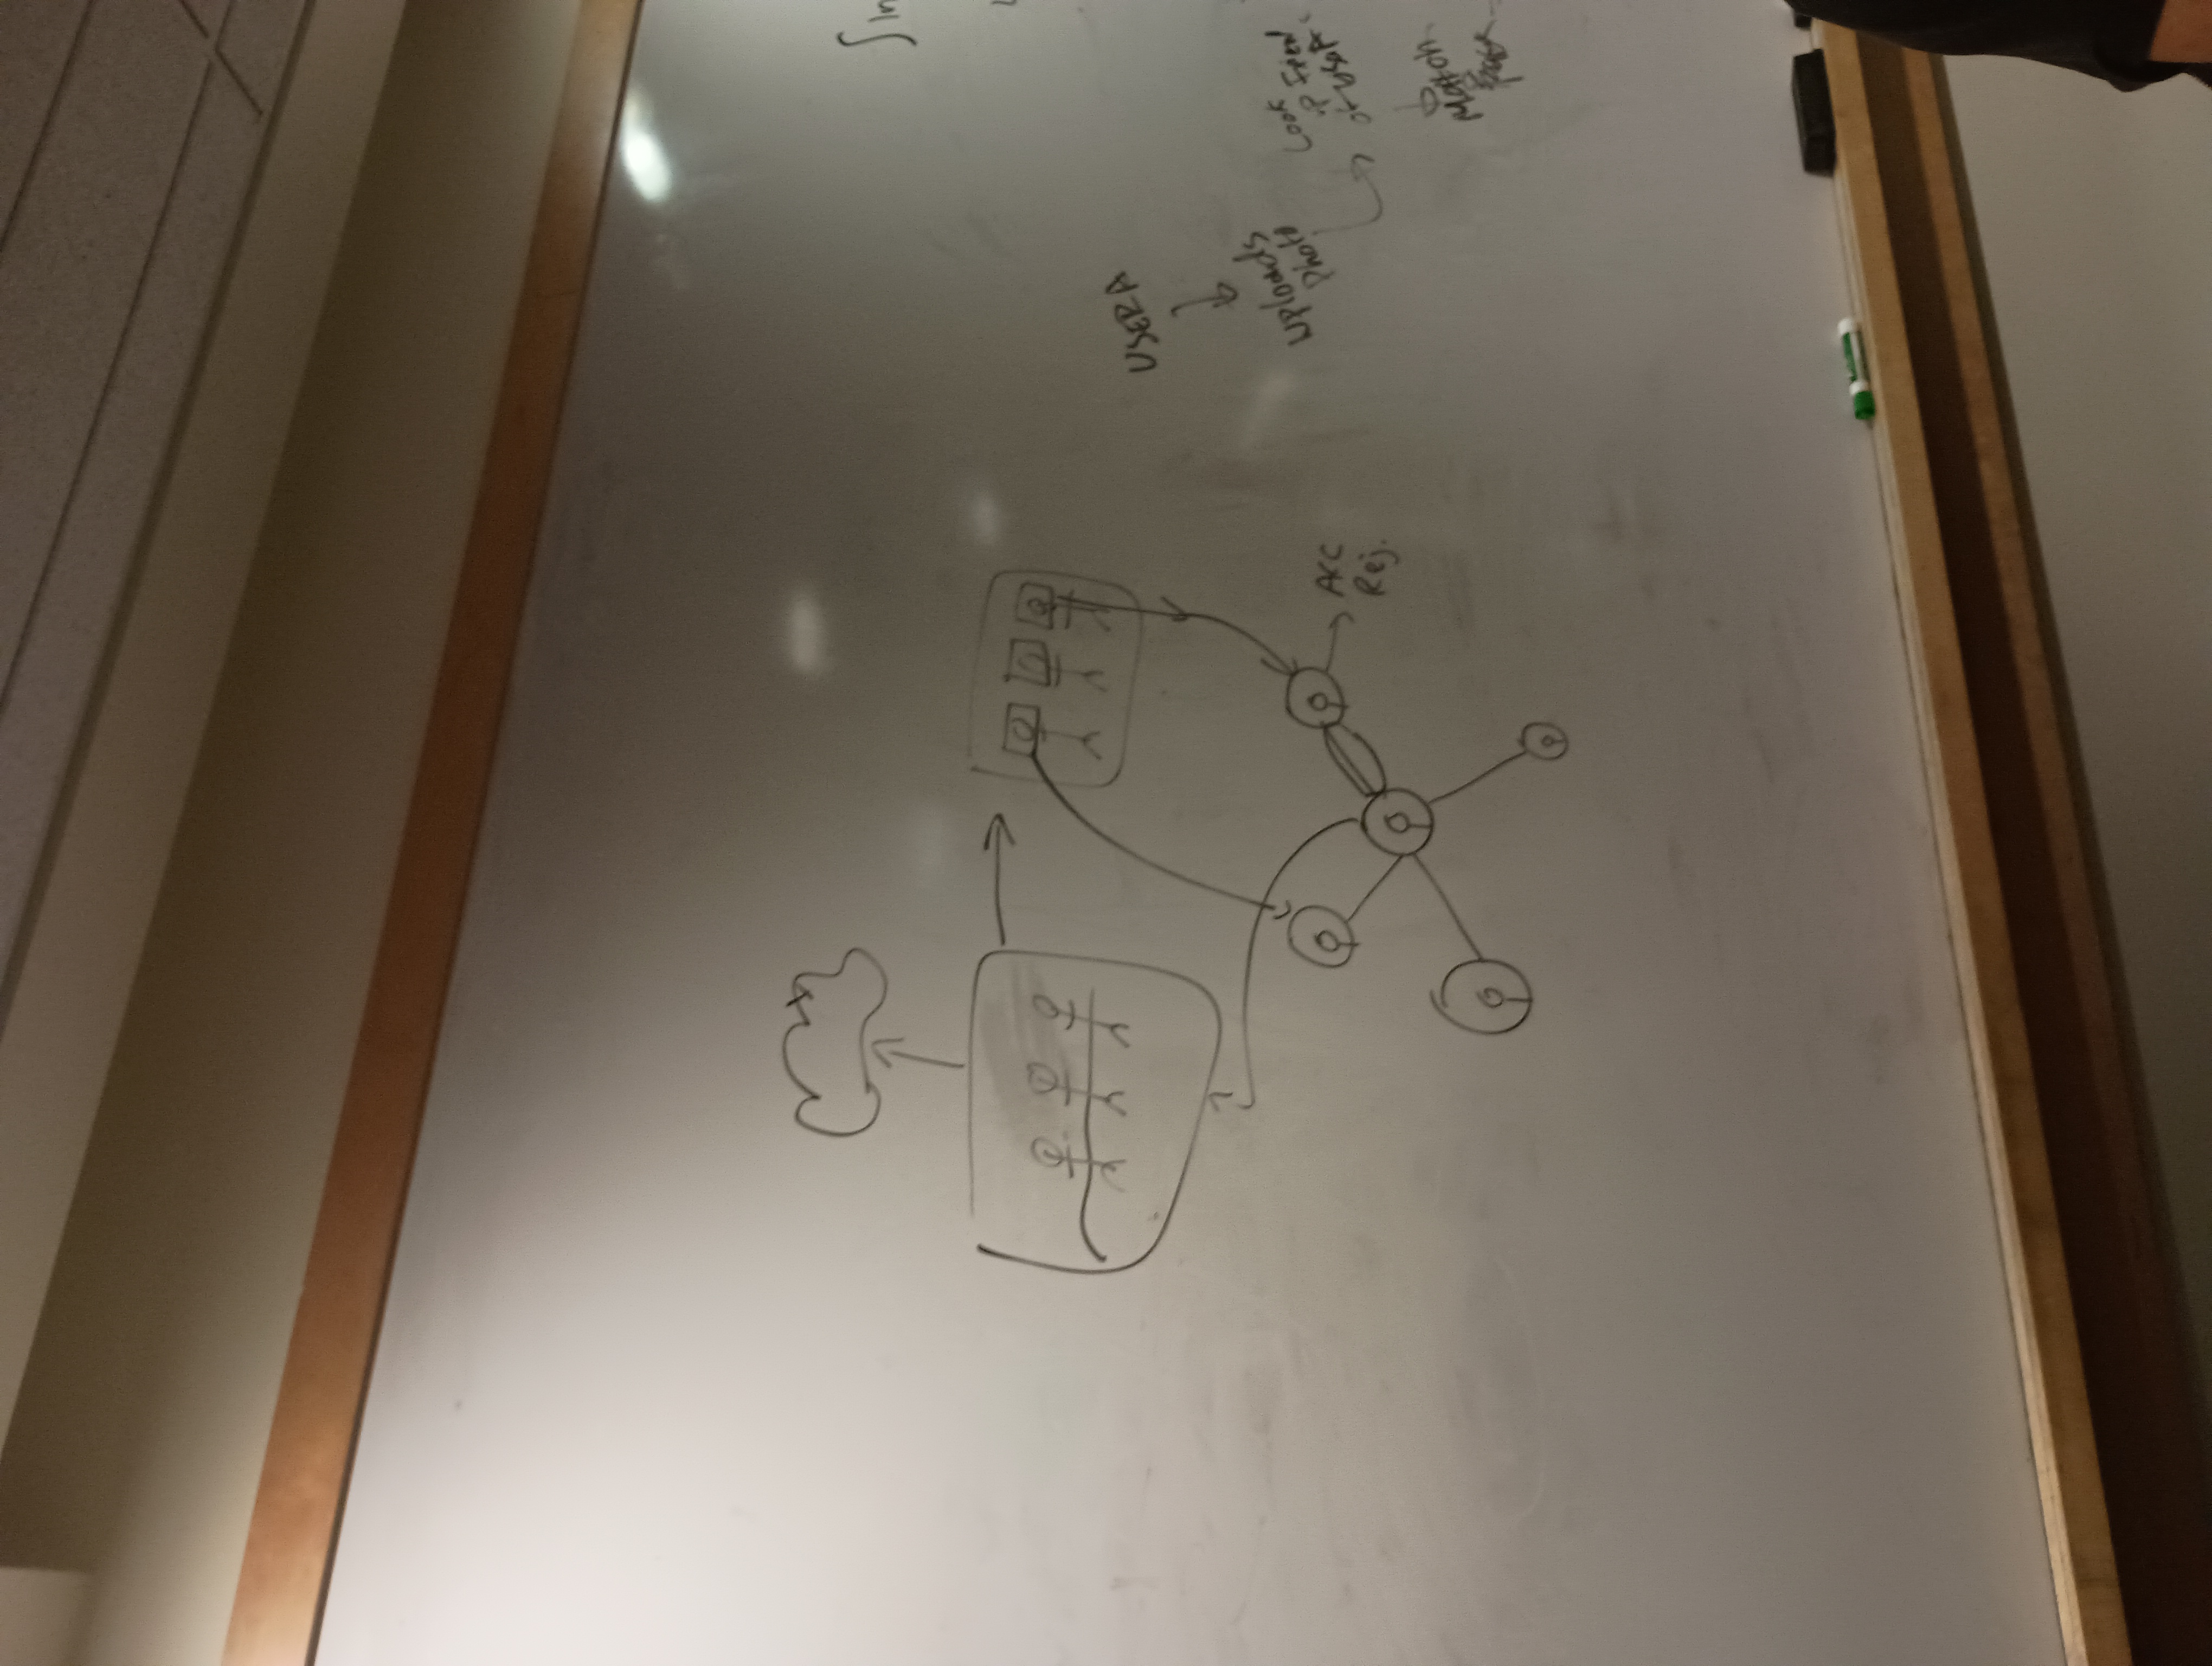 Acc
Rej.
USER A
Uploads
Photo
Look
up Frien
of UserA
Match